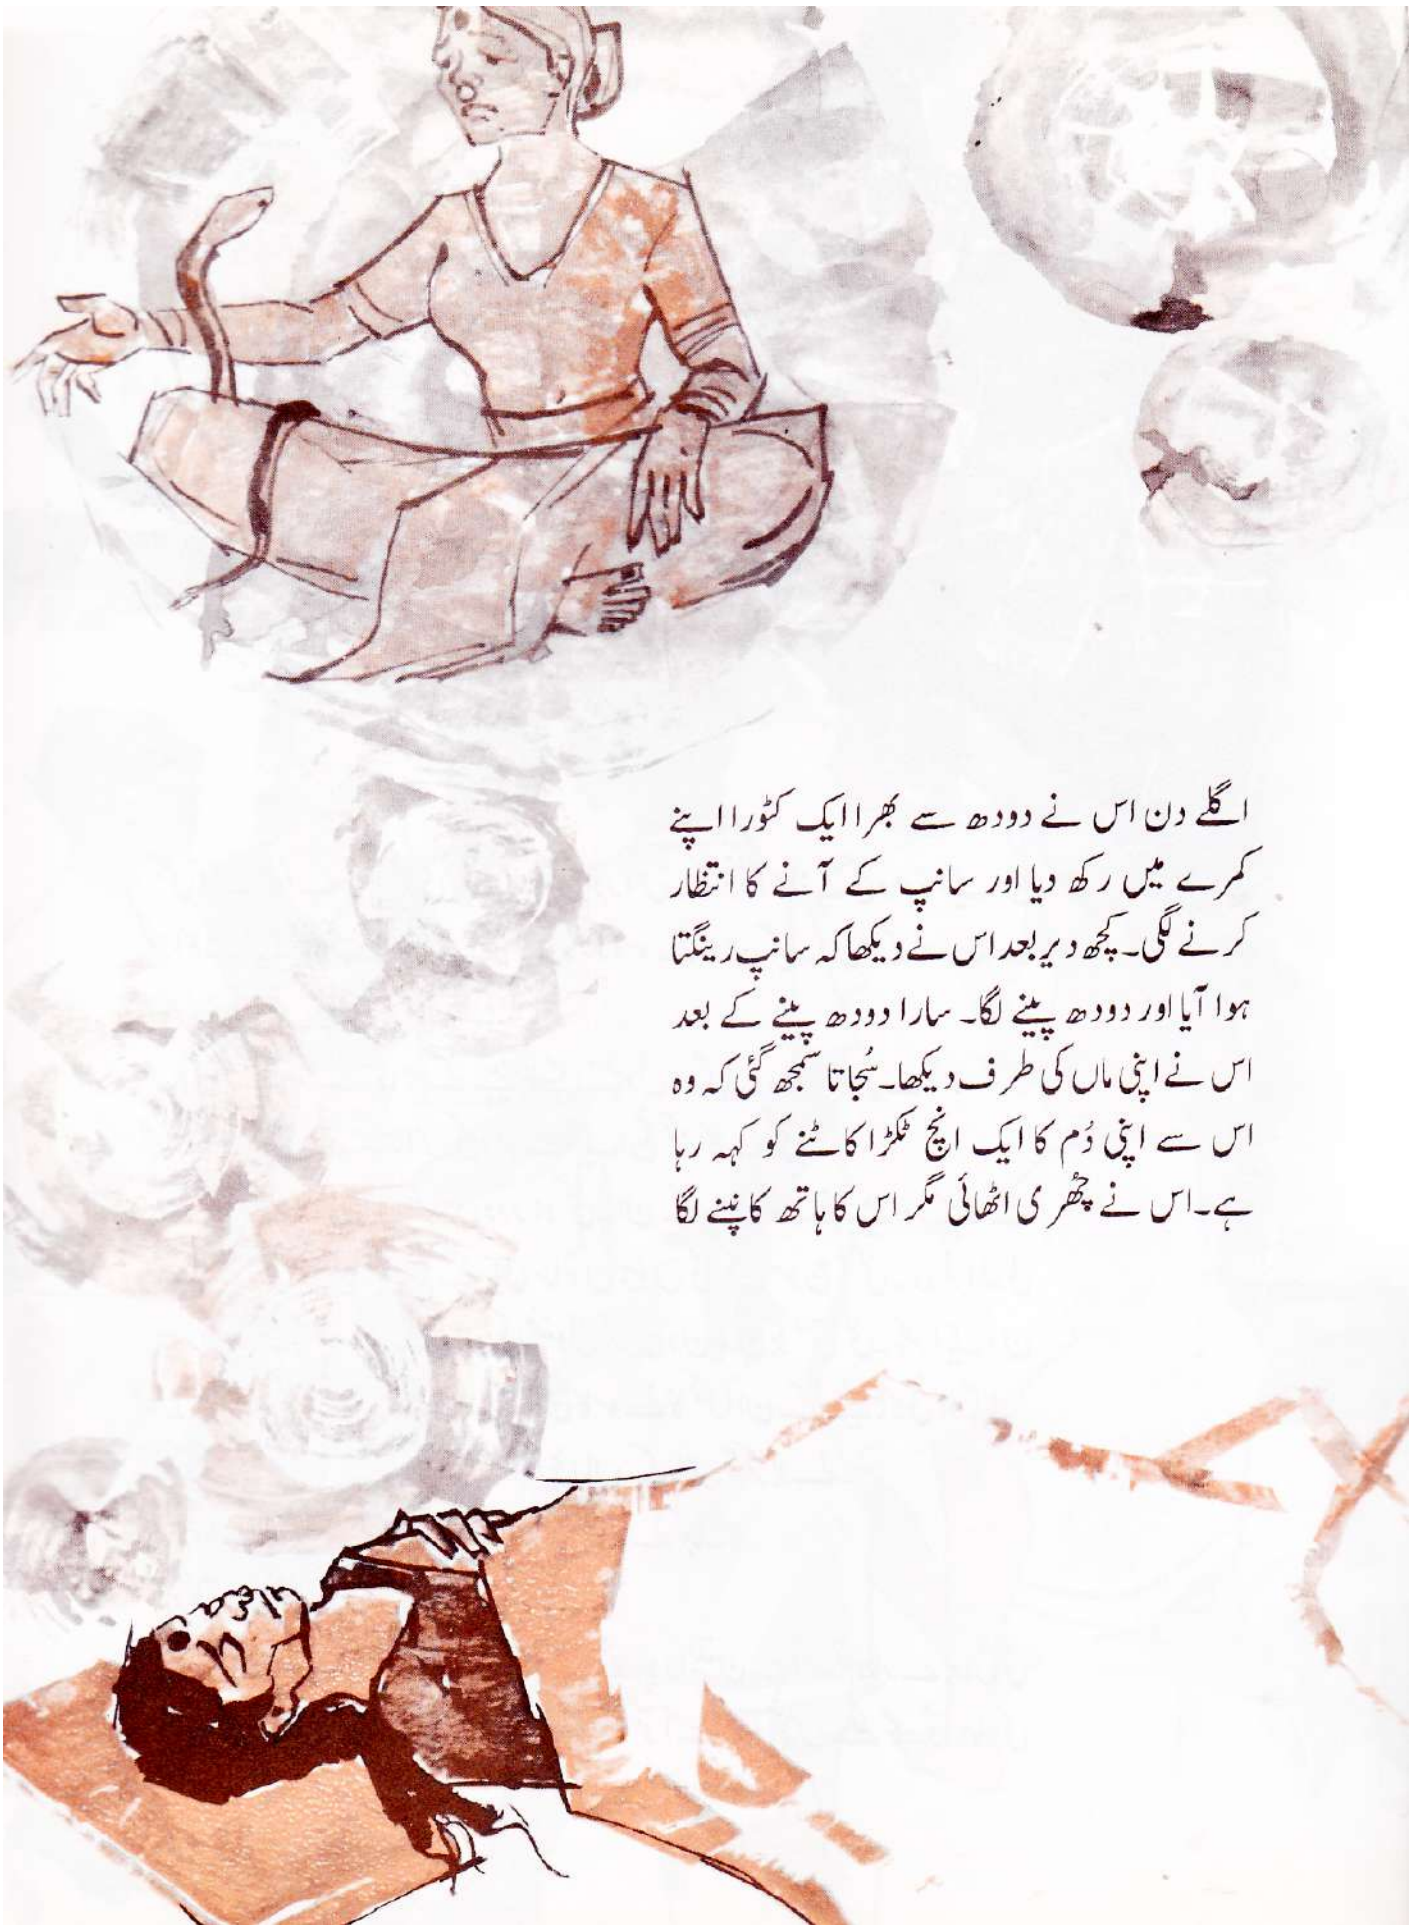 اگلے دن اس نے دودھ سے بھرا ایک کٹورا اپنے
کمرے میں رکھ دیا اور سانپ کے آنے کا انتظار
کرنے لگی۔ کچھ دیر بعد اس نے دیکھا کہ سانپ رینگتا
ہوا آیا اور دودھ پینے لگا۔ سارا دودھ پینے کے بعد
اس نے اپنی ماں کی طرف دیکھا۔ سُجاتا سمجھ گئی کہ وہ
اس سے اپنی دُم کا ایک انچ ٹکڑا کاٹنے کو کہہ رہا
ہے۔ اس نے چھُری اٹھائی مگر اس کا ہاتھ کانپنے لگا